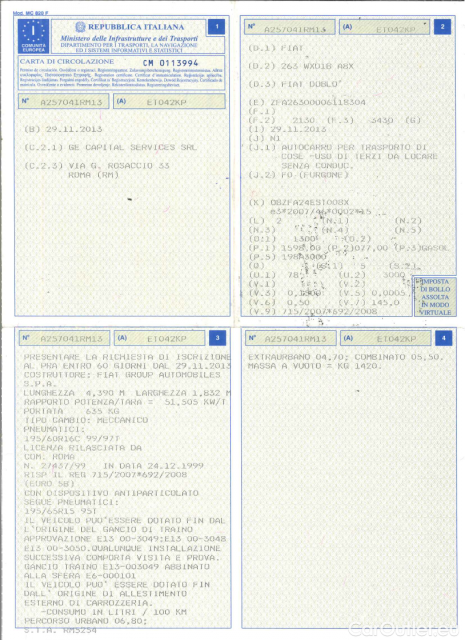 Mod. MC 820 F
I
COMUNITÀ
EUROPEA
REPUBBLICA ITALIANA
Ministero delle Infrastrutture e dei Trasporti
DIPARTIMENTO PER I TRASPORTI, LA NAVIGAZIONE
ED I SISTEMI INFORMATIVI E STATISTICI
1
CARTA DI CIRCOLAZIONE CM 0113994
N° A257041RM13 (A) ET042KP
(B) 29.11.2013
(C.2.1) GE CAPITAL SERVICES SRL
(C.2.3) VIA G. ROSACCIO 33
ROMA (RM)
N° A257041RM13 (A) ET042KP 2
(D.1) FIAT
(D.2) 263 WXD1B A8X
(D.3) FIAT DOBLO'
(E) ZFA26300006118304
(F.1)
(F.2) 2130 (F.3) 3430 (G)
(I) 29.11.2013
(J) N1
(J.1) AUTOCARRO PER TRASPORTO DI
COSE -USO DI TERZI DA LOCARE
SENZA CONDUC.
(J.2) F0 (FURGONE)
(K) OBZFA24EST008X
e3*2007/46*0002*15
(L) 2 (N.1) (N.2)
(N.3) (N.4) (N.5)
(O.1) 1300 (O.2)
(P.1) 1598,00 (P.2)077,00 (P.3)GASOL
(P.5) 198A3000
(Q) (S.1) 5 (S.2)
(U.1) 78 (U.2) 3000
(V.1) (V.2)
(V.3) 0,1800 (V.5) 0,0005
(V.6) 0,50 (V.7) 145,0
(V.9) 715/2007*692/2008
IMPOSTA
DI BOLLO
ASSOLTA
IN MODO
VIRTUALE
N° A257041RM13 (A) ET042KP 3
PRESENTARE LA RICHIESTA DI ISCRIZIONE
AL PRA ENTRO 60 GIORNI DAL 29.11.2013
COSTRUTTORE: FIAT GROUP AUTOMOBILES
S.P.A.
LUNGHEZZA 4,390 M LARGHEZZA 1,832 M
RAPPORTO POTENZA/TARA = 51,505 KW/T
PORTATA 635 KG
TIPO CAMBIO: MECCANICO
PNEUMATICI:
195/60R16C 99/97T
LICENZA RILASCIATA DA
COM. ROMA
N. 27437/99 IN DATA 24.12.1999
RISP IL REG 715/2007*692/2008
(EURO 5B)
CON DISPOSITIVO ANTIPARTICOLATO
SEGUE PNEUMATICI:
195/65R15 95T
IL VEICOLO PUO'ESSERE DOTATO FIN DAL
L'ORIGINE DEL GANCIO DI TRAINO
APPROVAZIONE E13 00-3049;E13 00-3048
E13 00-3050.QUALUNQUE INSTALLAZIONE
SUCCESSIVA COMPORTA VISITA E PROVA.
GANCIO TRAINO E13-003049 ABBINATO
ALLA SFERA E6-000101
IL VEICOLO PUO' ESSERE DOTATO FIN
DALL' ORIGINE DI ALLESTIMENTO
ESTERNO DI CARROZZERIA.
-CONSUMO IN LITRI / 100 KM
PERCORSO URBANO 06,80;
S.T.A. RM5254
N° A257041RM13 (A) ET042KP 4
EXTRAURBANO 04,70; COMBINATO 05,50.
MASSA A VUOTO = KG 1420.
CarOutlet.eu